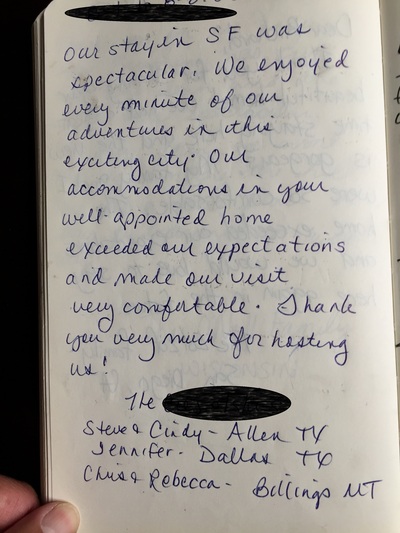 our stay in SF was
spectacular. We enjoyed
every minute of our
adventures in this
exciting city. Our
accommodations in your
well-appointed home
exceeded our expectations
and made our visit
very comfortable. Thank
you very much for hosting
us!
The
Steve & Cindy - Allen TX
Jennifer - Dallas TX
Chris & Rebecca - Billings MT